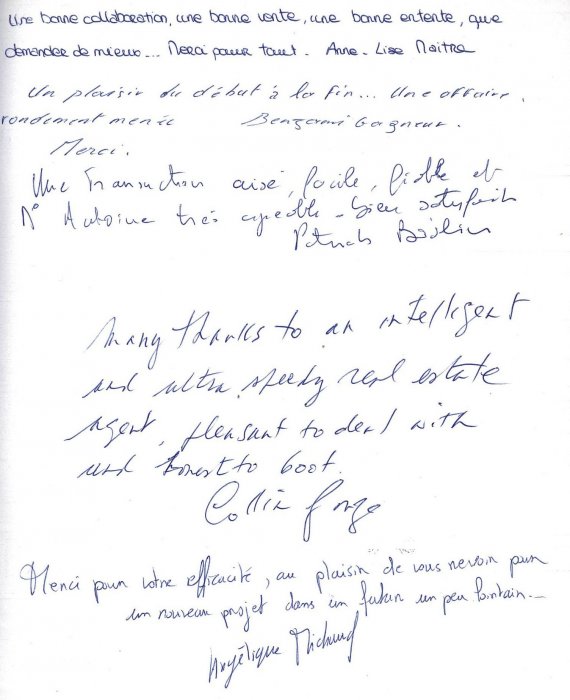 Une bonne collaboration, une bonne vente, une bonne entente, que
demander de mieux... Merci pour tout. Anne-Lise Maitre
Un plaisir du début à la fin... Une affaire
rondement menée Benjamin Gagneur.
Merci.
Une transaction aisé, facile, fiable et
Mr Antoine très agréable - bien satisfait
Patrick
Many thanks to an intelligent
and ultra speedy real estate
agent, pleasant to deal with
and honest to boot.
Colin
Merci pour votre efficacité, au plaisir de vous revoir pour
un nouveau projet dans un futur un peu lointain...
Angélique Michaud